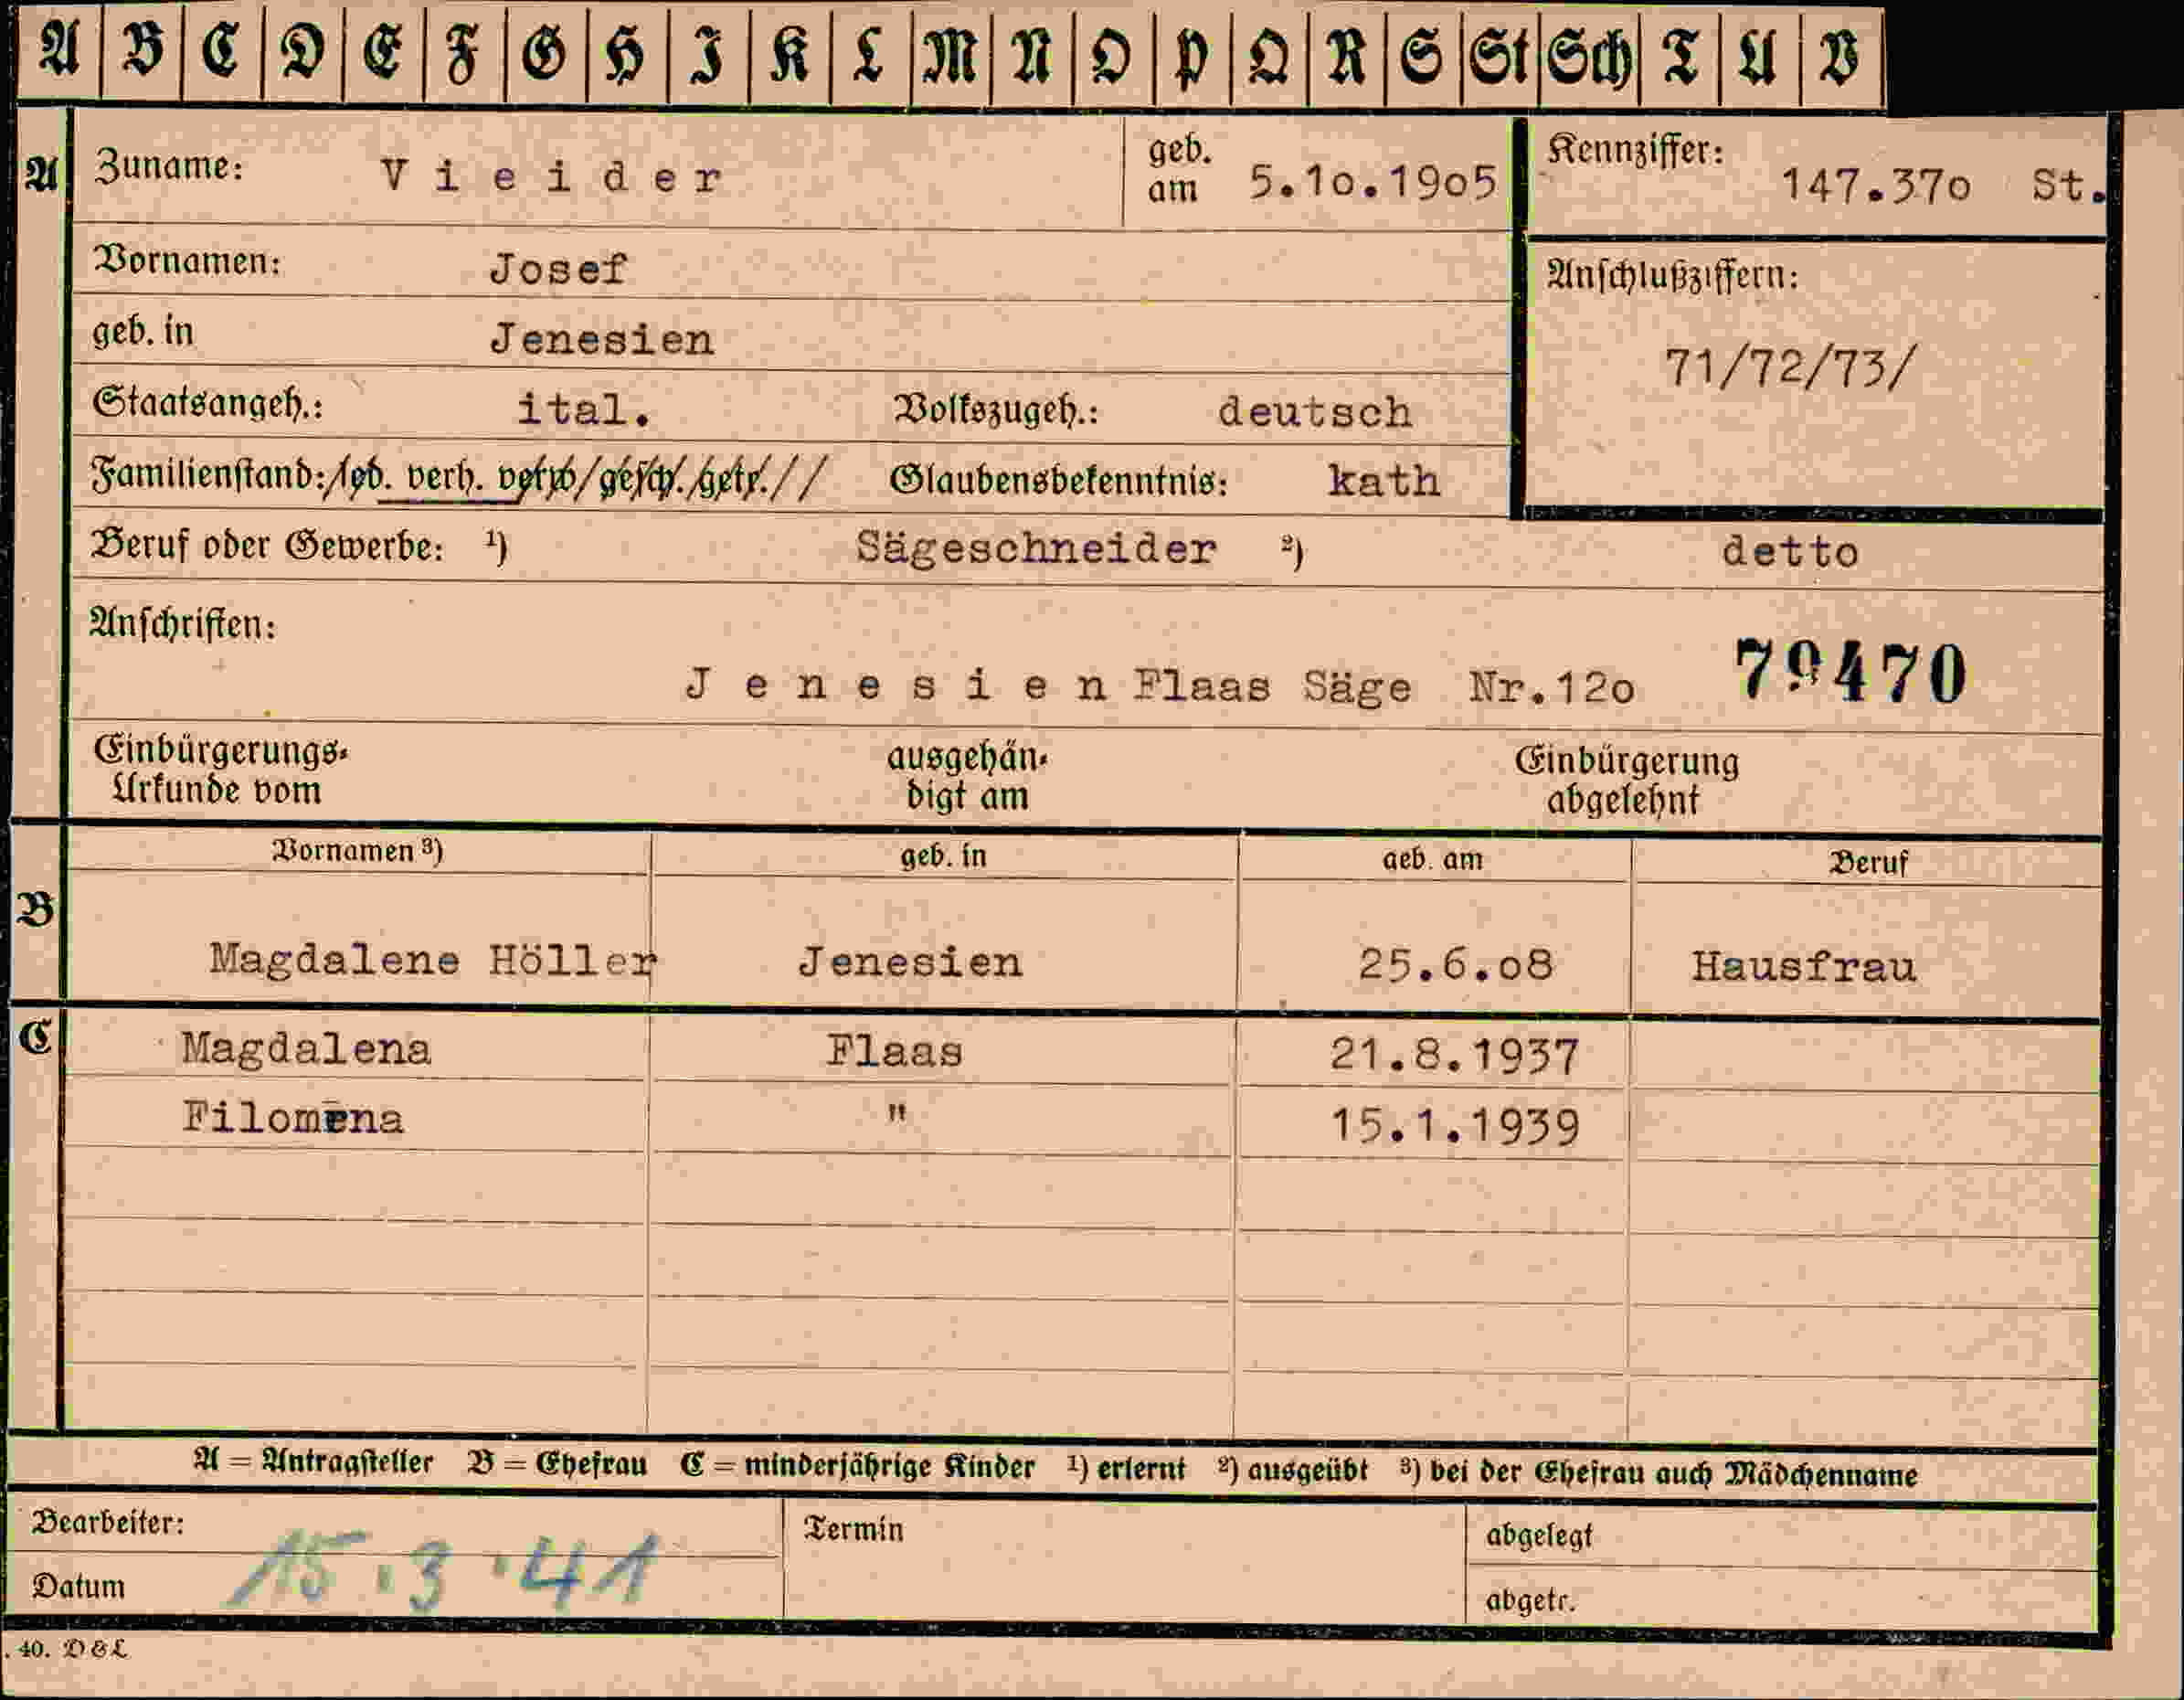 A B C D E F G H I K L M N O P Q R S St Sch T U V
A Zuname: Vieider geb. am 5.10.1905 Kennziffer: 147.370 St.
Vornamen: Josef Anschlußziffern:
geb. in Jenesien 71/72/73/
Staatsangeh.: ital. Volkszugeh.: deutsch
Familienstand: led. verh. verw. gesch. getr. Glaubensbekenntnis: kath
Beruf oder Gewerbe: ¹) Sägeschneider ²) detto
Anschriften:
Jenesien Flaas Säge Nr.120 79470
Einbürgerungs- ausgehän- Einbürgerung
Urkunde vom digt am abgelehnt
Vornamen ³) geb. in geb. am Beruf
B
Magdalene Höller Jenesien 25.6.08 Hausfrau
C Magdalena Flaas 21.8.1937
Filomena " 15.1.1939
A = Antragsteller B = Ehefrau C = minderjährige Kinder ¹) erlernt ²) ausgeübt ³) bei der Ehefrau auch Mädchenname
Bearbeiter: Termin abgelegt
Datum 15.3.41 abgetr.
. 40. D & L